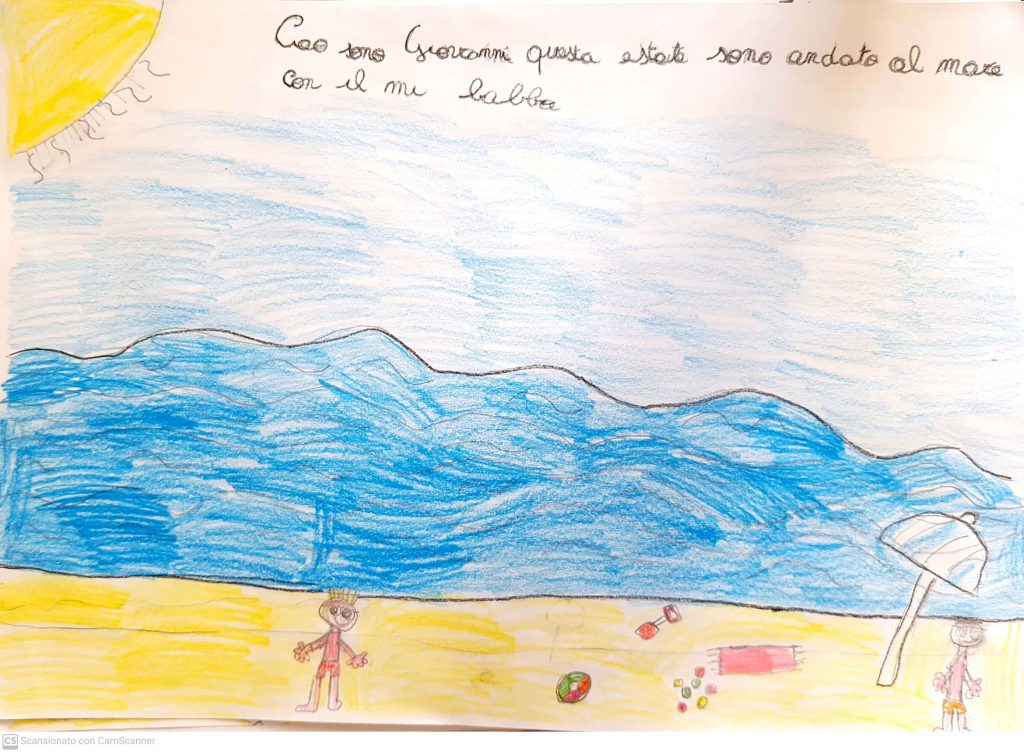 Ciao sono Giovanni questa estate sono andato al mare
con il mi babbo
CS Scansionato con CamScanner